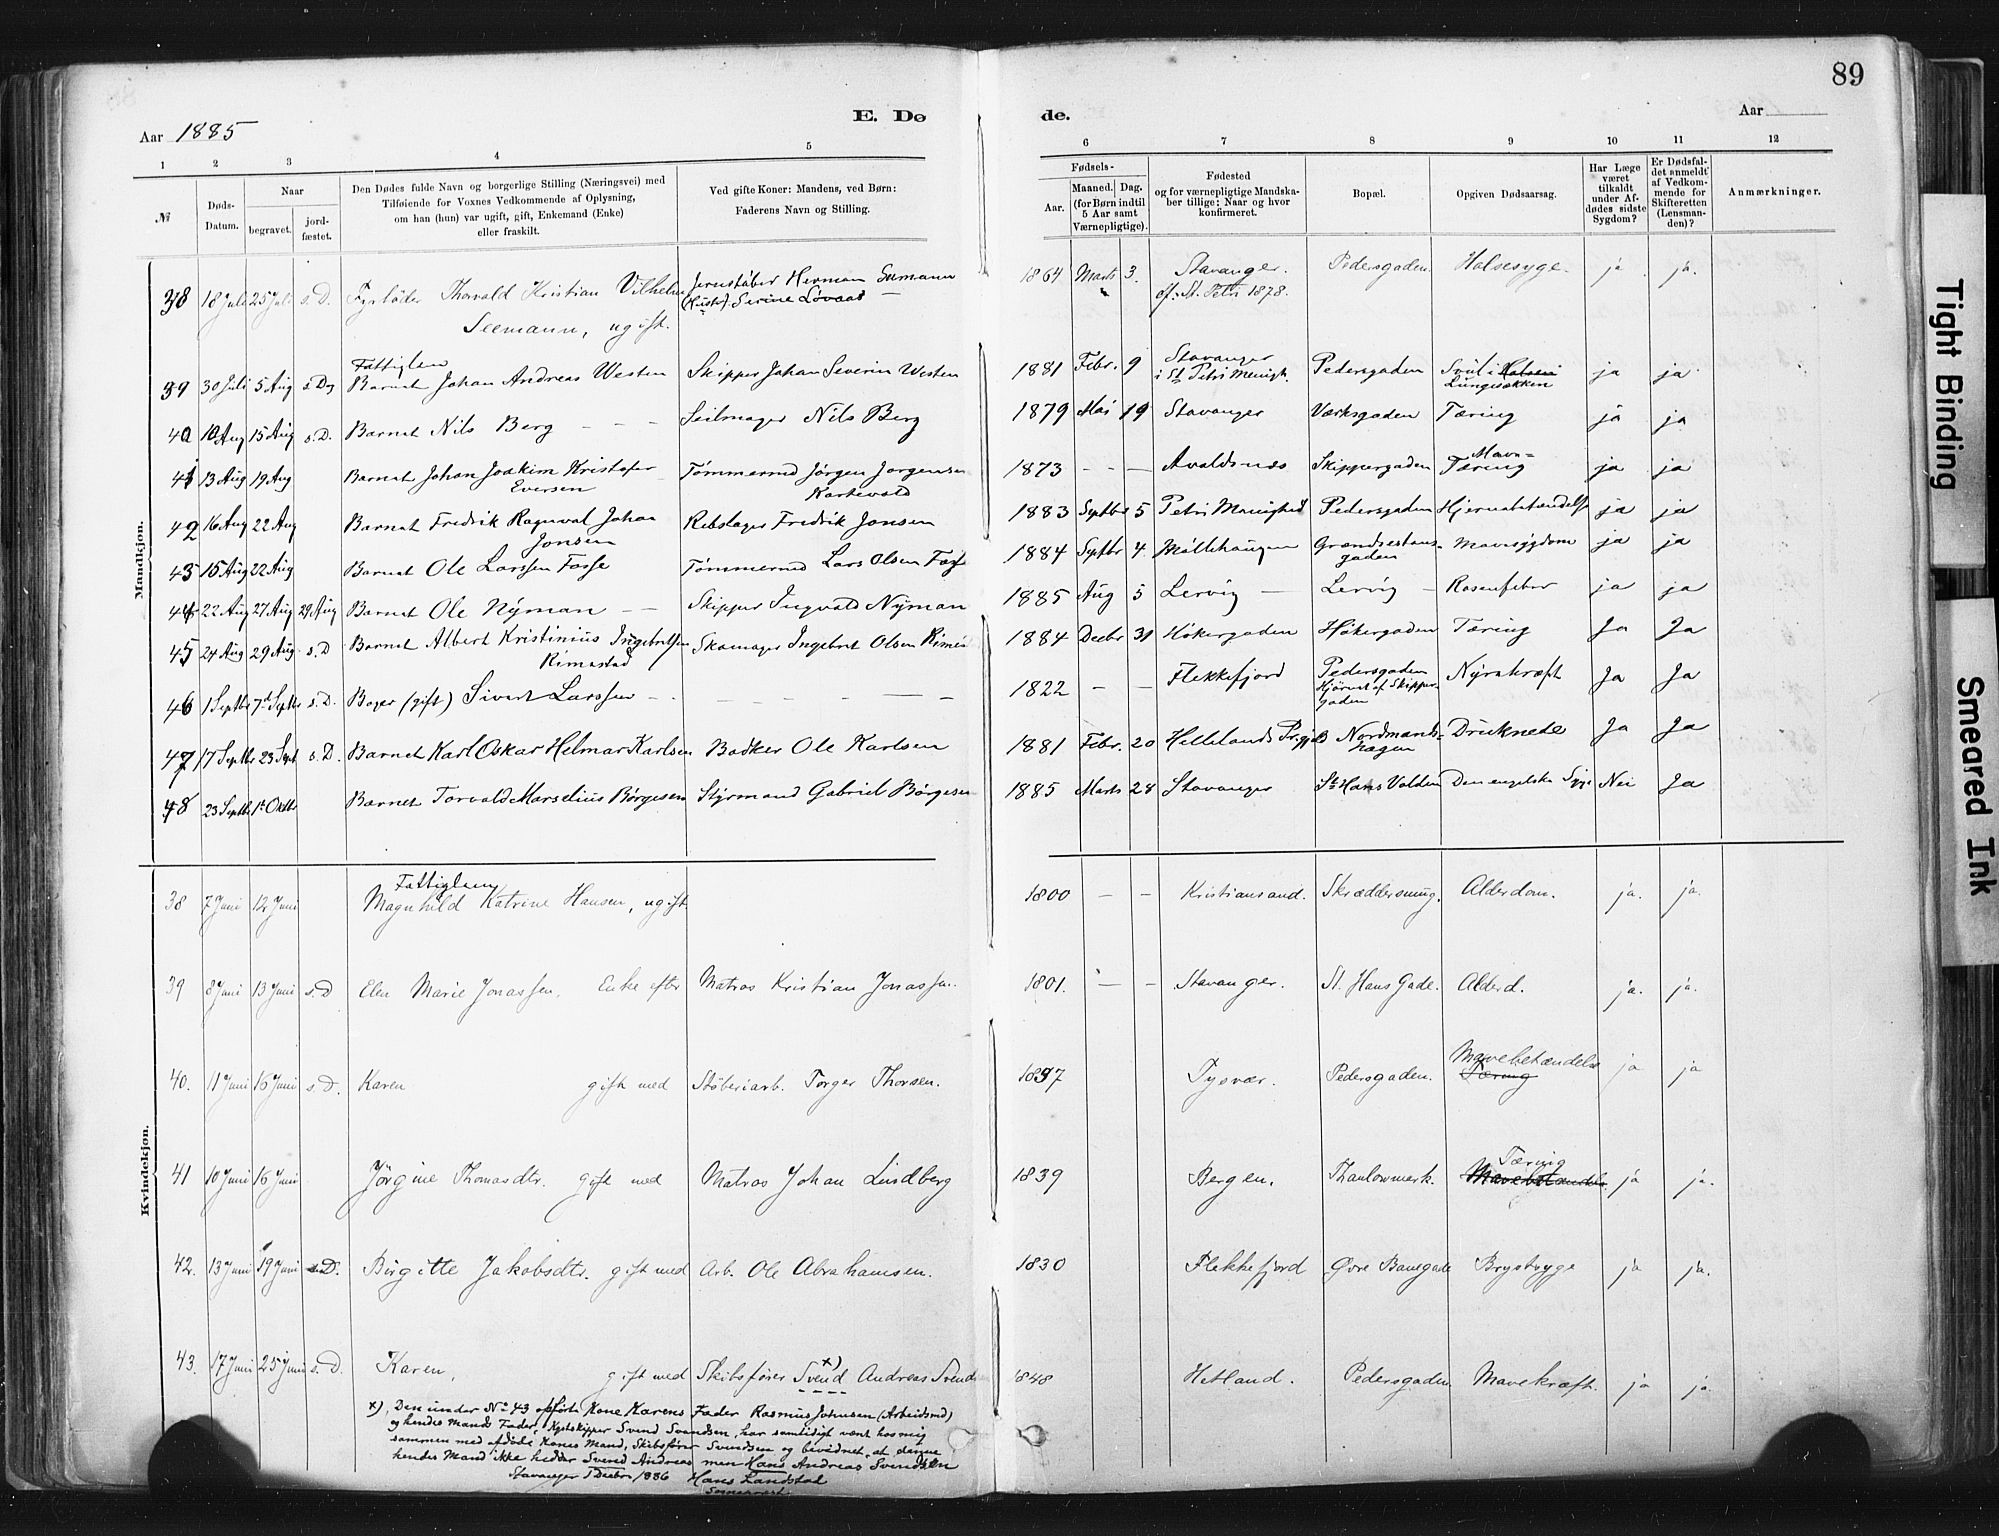 89
E. Dø de.
Aar 1885
Aar
1 2 3 4 5 6 7 8 9 10 11 12
№
Døds-Datum.
Naar
begravet.
jord-fæstet.
Den Dødes fulde Navn og borgerlige Stilling (Næringsvei) med
Tilføiende for Voxnes Vedkommende af Oplysning,
om han (hun) var ugift, gift, Enkemand (Enke)
eller fraskilt.
Ved gifte Koner: Mandens, ved Børn:
Faderens Navn og Stilling.
Fødsels-
Aar.
Maaned. Dag.
(for Børn indtil
5 Aar samt
Værnepligtige).
Fødested
og for værnepligtige Mandska-
ber tillige: Naar og hvor
konfirmeret.
Bopæl.
Opgiven Dødsaarsag.
Har Læge
været
tilkaldt
under Af-
dødes sidste
Sygdom?
Er Dødsfal-
det anmeldt
af Vedkom-
mende for
Skifteretten
(Lensman-
den)?
Anmærkninger.
Mandkjøn.
38 18 Juli 25 Juli s.D. Fyrbøder Thorvald Kristian Vilhelm Jernstøber Herman Seemann 1864 Marts 3. Stavanger. Pedersgaden. Halsesyge. ja ja.
Seemann, ugift. (Hustr.) Serine Lövaas St. Petri 1878.
Fattiglem
39 30 Juli 5 Aug s.D. Barnet Johan Andreas Westen Skipper Johan Severin Westen 1881 Febr. 9 Stavanger i St Petri Menigh. Pedersgaden Svul i Halsen Lungesækken ja ja
40 10 Aug 15 Aug s.D. Barnet Nils Berg - - - Seilmager Nils Berg 1879 Mai 19 Stavanger Værksgaden Tæring ja ja
41 13 Aug 19 Aug Barnet Johan Joakim Kristofer Eversen Tømmermd Jørgen Jørgensen 1873 - - - Avaldsnes Skippergaden Mave-Tæring ja ja
42 16 Aug 22 Aug Barnet Fredrik Ragnval Johan Jonsen Rebslager Fredrik Jonsen 1883 Septbr 5 Petri Menighed Pedersgaden Hjernebetændelse ja ja
43 15 Aug 22 Aug Barnet Ole Larssen Fosse Tømmermd Lars Olsen 1884 Septbr 4. Møllehaugen gaden Mavesygdom ja ja
44 22 Aug 27 Aug 29 Aug Barnet Ole Nyman - - Skipper Ingvald Nyman 1885 Aug 5 Lervig - Lervig - Rosenfeber ja ja
45 24 Aug 29 Aug s.D Barnet Albert Kristinius Ingebretsen Rimestad Skomager Ingebret Olsen 1884 Decbr 31 Høkergaden Høkergaden Tæring Ja Ja
46 1 Septbr 7d Septbr s.D. Bager (gift) Sivert Larssen - - - - - 1822 - - Flekkefjord Pedersgaden Hjørnet af Skippergaden Nyrekræft Ja Ja
47 17 Septbr 23 Sept s.D. Barnet Karl Oskar Helmar Karlsen Bødker Ole Karlsen 1881 Febr. 20 Hellelands Nordmands-hagen Druknede Ja Ja
48 23 Septbr 1st Oktbr Barnet Torvald Marselius Børgesen Styrmand Gabriel Børgesen 1885 Marts 28 Stavanger St Hans Volden Den engelske Syge Nei Ja
Kvindekjøn.
Fattiglem
38 7 Juni 12 Juni Magnhild Katrine Hansen, ugift 1800 - - Kristiansand. Skræddersmug. Alderdom. ja. ja.
39 8 Juni 13 Juni s.D Elen Marie Jonassen. Enke efter Matros Kristian Jonassen. 1801. - - Stavanger. St. Hans Gade. Alderd. ja. ja.
40. 11 Juni 16 Juni s.D. Karen gift med Støberiarb. Torger Thorsen. Tysvær. Pedersgaden. Mavebetændelse Tæring ja ja
41 10 Juni 16 Juni Jørgine Thomasdtr. gift med Matros Johan Lindberg 1839 Bergen. Thaulowmark. Tæring Mavebetændelse ja ja.
42. 13 Juni 19 Juni s.D. Birgitte Jakobsdtr. gift med Arb. Ole Abrahamsen. 1830 Flekkefjord Øvre Banegade Brystsyge ja ja.
43. 17 Juni 25 Juni s.D. Karen, gift med Skibsfører Svend x) Andreas Svendsen 1848 Hetland. Pedersgaden. Mavekræft. ja ja.
x), Den under No 43 opførte Kone Karens Fader Rasmus Johnsen (Arbeidsmd)
og hendes Mands Fader, Kystskipper Svend Svendsen, har samtidigt været hos mig
sammen med afdøde Kones Mand, Skibsfører Svendsen og bevidnet, at denne
hendes Mand ikke hedder Svend Andreas men Hans Andreas Svendsen
Stavanger 1 Decbr 1886 Hans Landstad
Sognepræst
Tight Binding
Smeared Ink